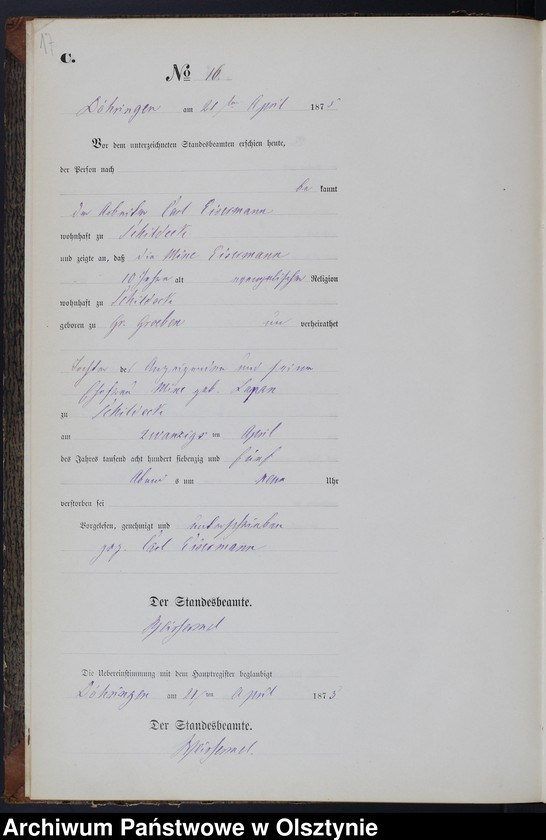 17
C.
No 16.
Döhringen am 21ten April 1875
Vor dem unterzeichneten Standesbeamten erschien heute,
der Person nach
be kannt
der Arbeiter Carl Eisermann
wohnhaft zu Schildeck
und zeigte an, daß die Mine Eisermann
10 Jahre alt evangelischer Religion
wohnhaft zu Schildeck
geboren zu Gr. Groeben un verheirathet
Tochter des Anzeigenden und seiner
Ehefrau Mine geb.
zu Schildeck
am zwanzigs ten April
des Jahres tausend acht hundert siebenzig und fünf
Abend s um neun Uhr
verstorben sei
Vorgelesen, genehmigt und unterschrieben
gez. Carl Eisermann
Der Standesbeamte.
Die Uebereinstimmung mit dem Hauptregister beglaubigt
Döhringen am 21 ten April 1875
Der Standesbeamte.
Archiwum Państwowe w Olsztynie